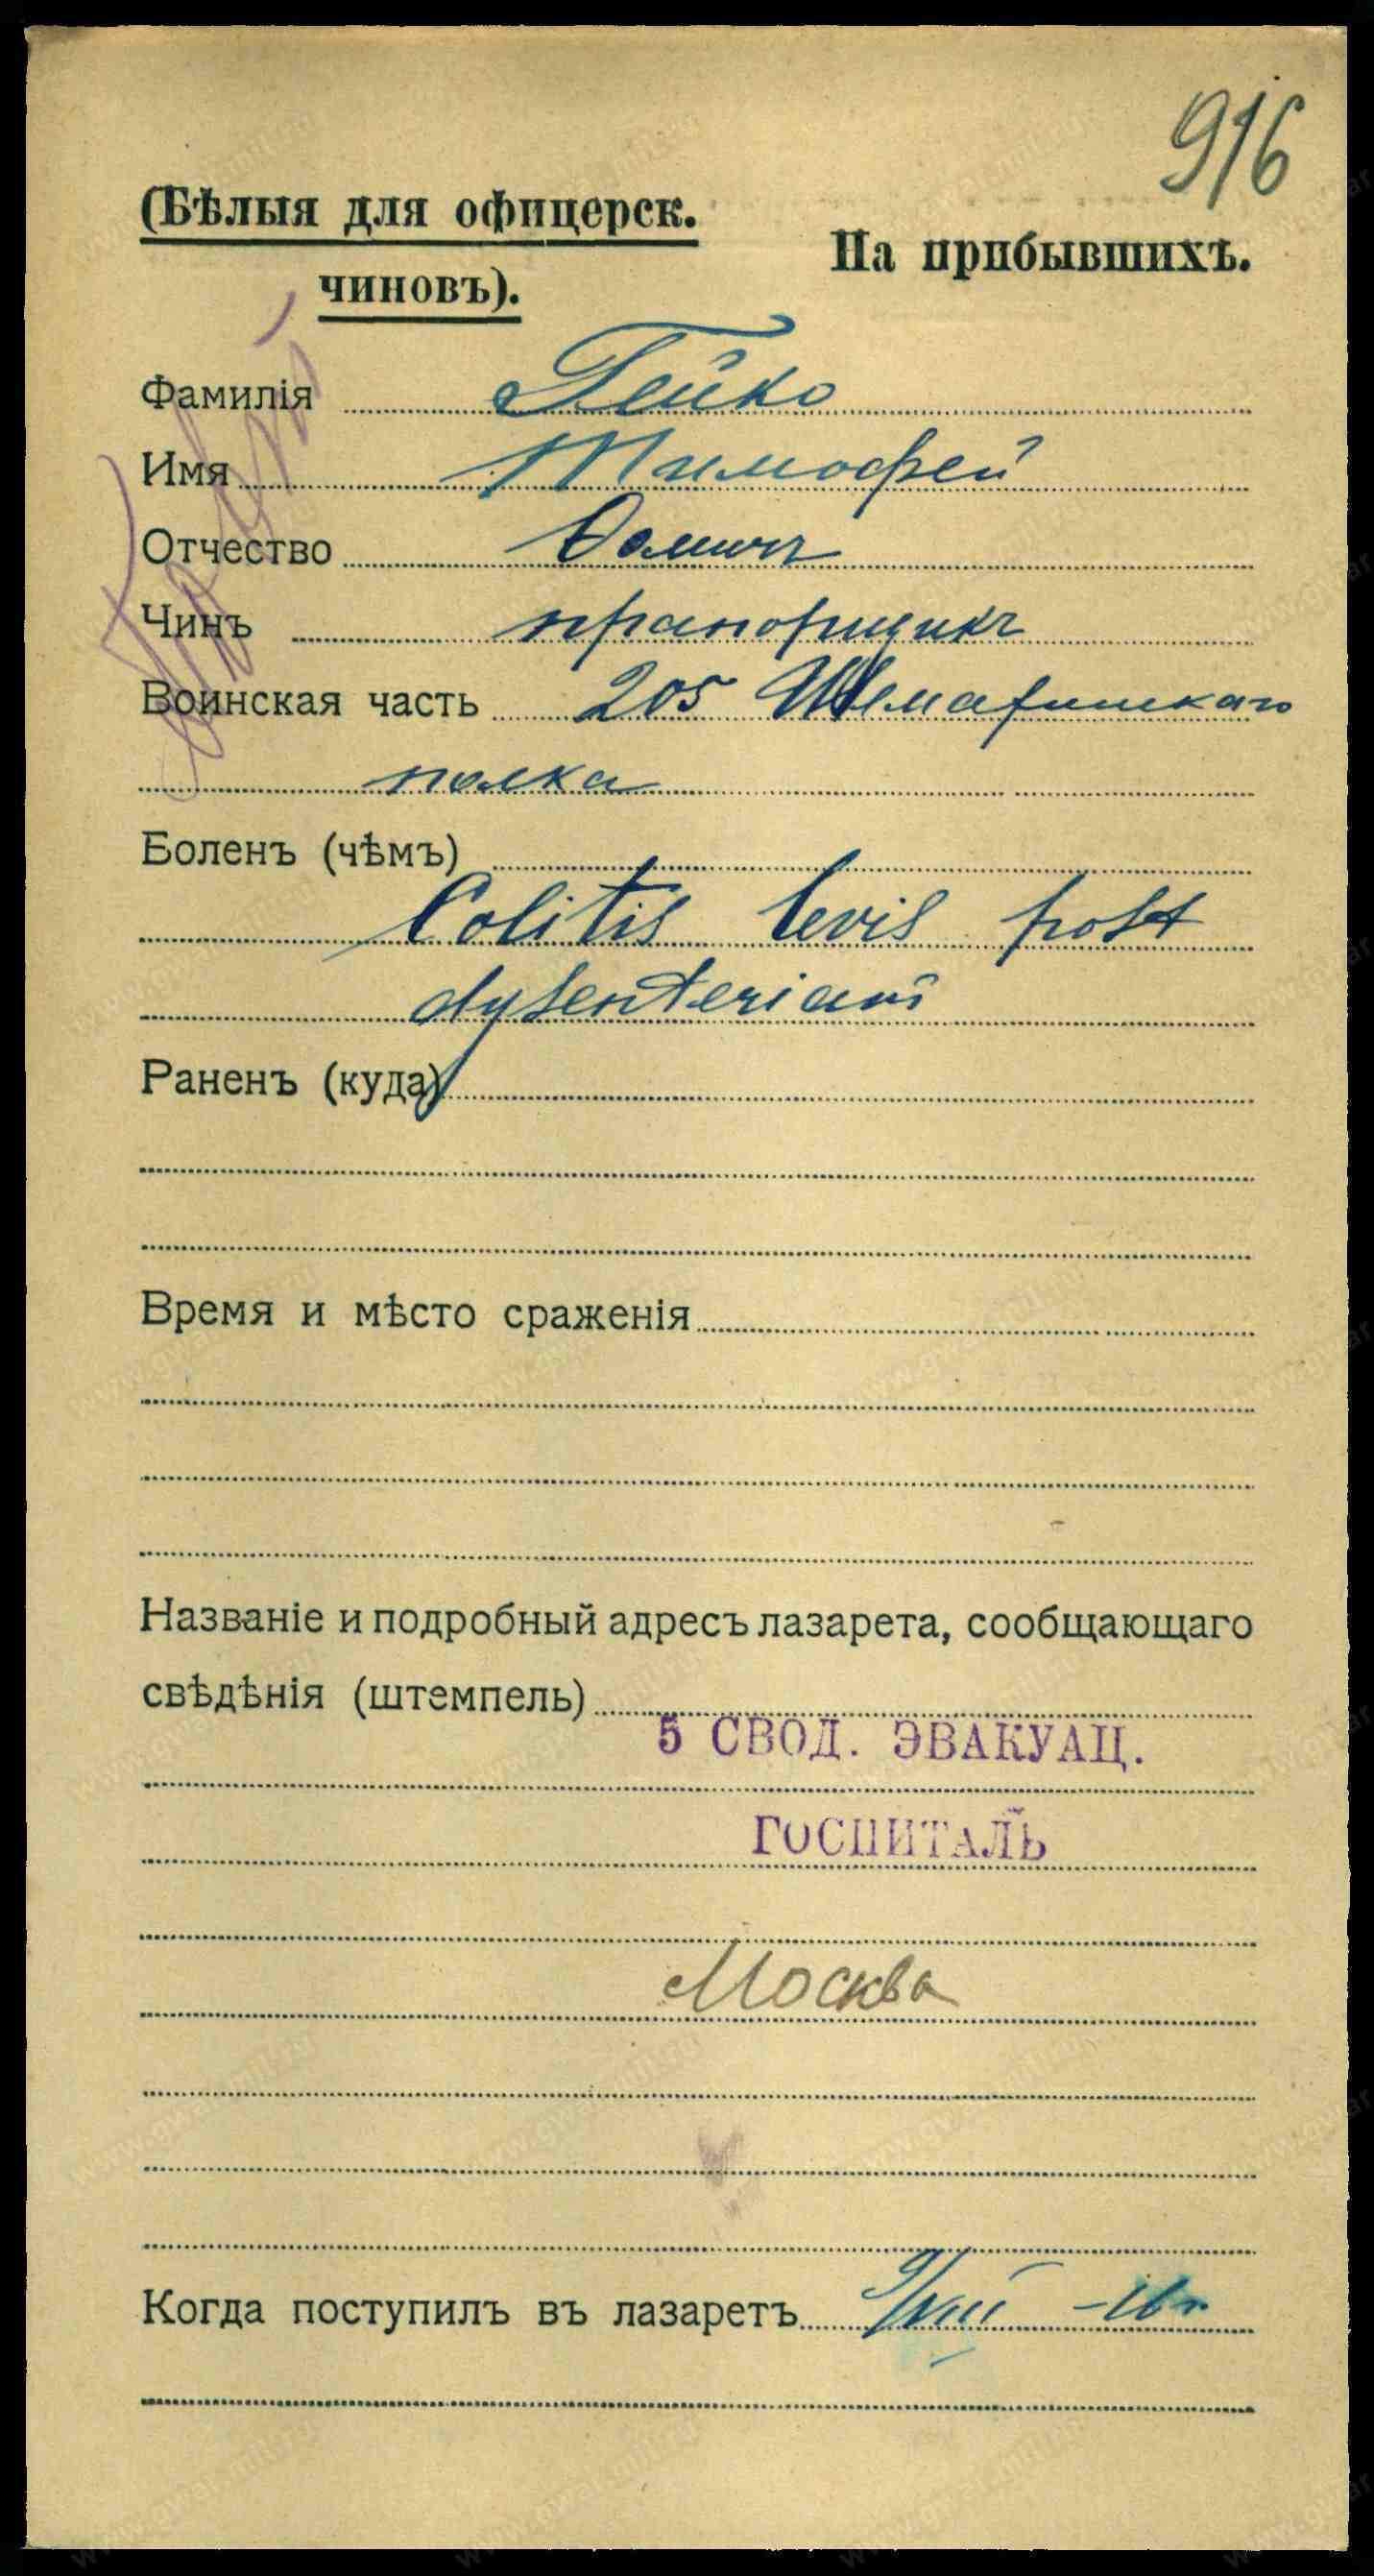 916
(Бѣлыя для офицерск.
чиновъ).
На прибывшихъ.
Фамилія Гейко
Имя Тимофей
Отчество Ѳомичъ
Чинъ прапорщикъ
Воинская часть 205 Шемахинскаго
полка
Боленъ (чѣмъ)
Colitis levis post
dysenteriam
Раненъ (куда)
Время и мѣсто сраженія
Названіе и подробный адресъ лазарета, сообщающаго
свѣдѣнія (штемпель)
5 СВОД. ЭВАКУАЦ.
ГОСПИТАЛЬ
Москва
Когда поступилъ въ лазаретъ 9/VIII - 16 г.